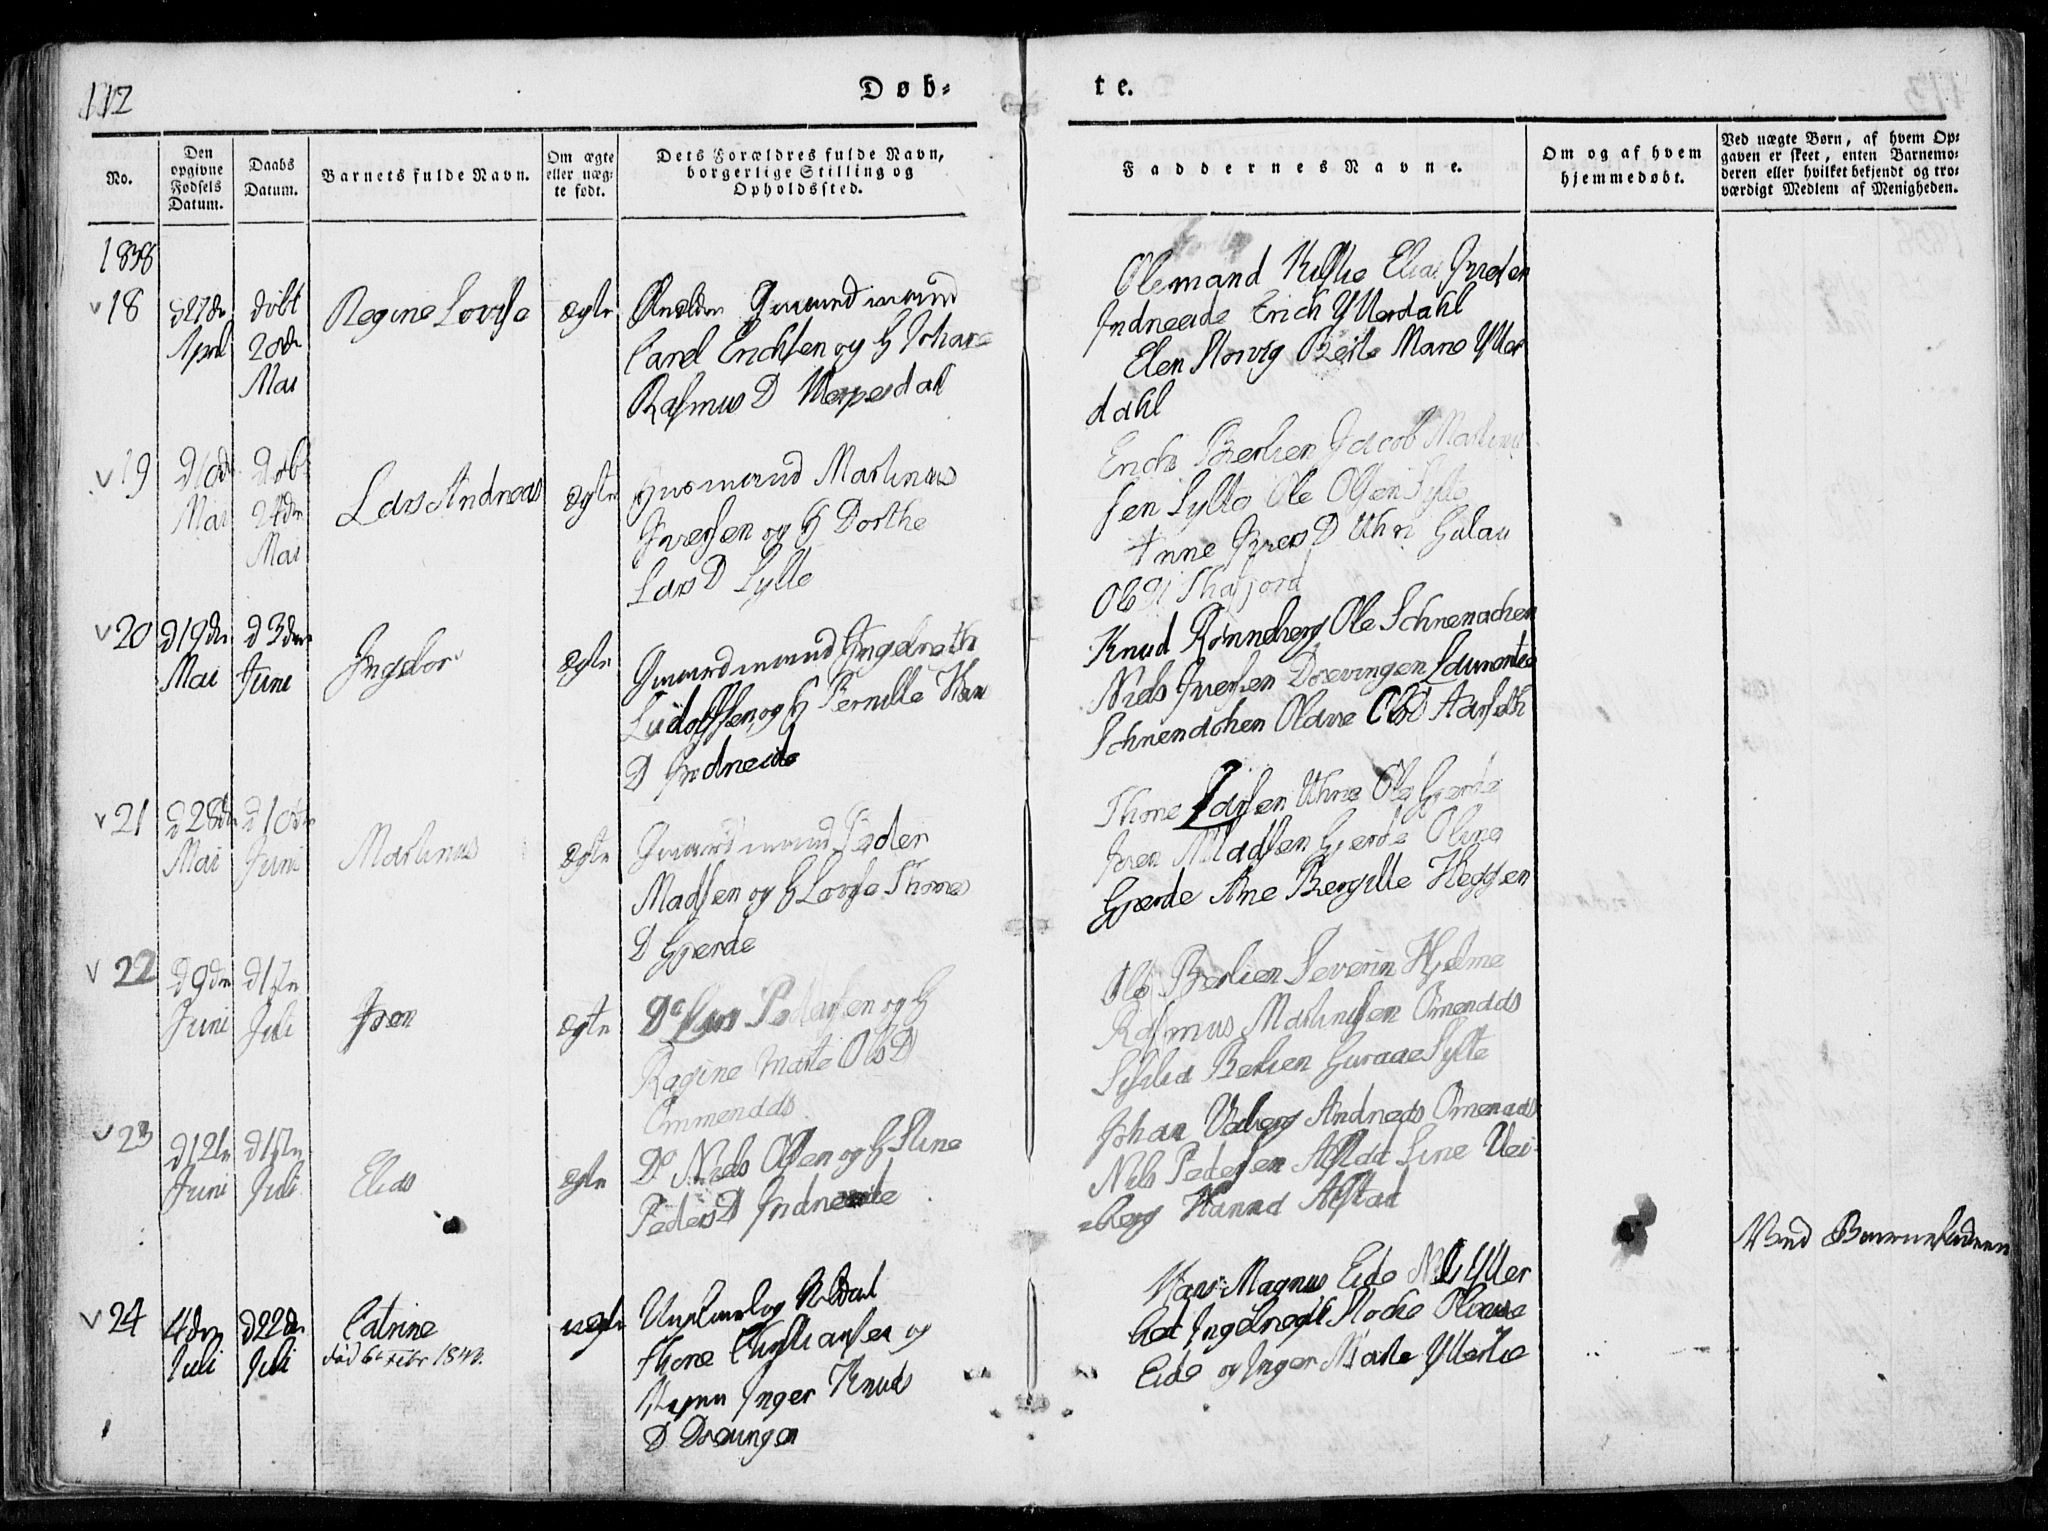 112
Døb-
te.
No.
Den opgivne Fødsels Datum.
Daabs Datum.
Barnets fulde Navn.
Om ægte eller uægte født.
Dets Forældres fulde Navn, borgerlige Stilling og Opholdssted.
Faddernes Navne.
Om og af hvem hjemmedøbt.
Ved uægte Børn, af hvem Opgaven er skeet, enten Barnemoderen eller hvilket bekjendt og troværdigt Medlem af Menigheden.
1838
18
d 27de April
døbt 20de Mai
Regine Lovise
ægte
Gaardmand
Carel Erichsen og H Johane
Rasmus D
Elias Iversen
Indreeide Erich Ytterdahl
Elen Berte Mare Ytter
dahl
19
d 10de Mai
Døbt 24de Mai
Lars Andreas
ægte
Huusmand Martinus
Iversen og H Dorthe
Lars D Sylte
Erich Berlien Jacob Martinu
sen Sylte Ole Olsen Sylte
Anne Ivers D Uhri
Ols D Thafjord
20
d 19de Mai
d 3de Juni
Ingebor
ægte
Gaardmand Ingebreth
Ludolfsen og H Pernille Han
D Indreeide
Knud Rønneberg Ole
Niels Iversen Døevingen Laurentse
Olave Ols D Aarseth
21
d 28de Mai
d 10de Juni
Martinus
ægte
Gaardmand Peder
Madsen og H Lovise Thore
D Gjerde
Thore Larsen Uhri Ole Gjerde
Iver Madsen Gjerde Olina
Gjerde Ane Bergitte Heggen
22
d 9de Juni
d 1ste Juli
Iver
ægte
Do Pedersen og H
Ragine Marte Ols D
Ommendds
Ole Berlien Severin Hjelme
Rasmus Martinusen Omendds
Berlien Guraae Sylte
23
d 12te Juni
d 1ste Juli
Elias
ægte
Do Niels Olsen og H Stine
Peders D Indreeide
Johan Veiberg Andreas Omenaas
Nils Pedersen Alstad Line Vei
=berg Hanna Alstad
24
4de Juli
d 22de Juli
Catrine
død 6te Febr 184
uægte
Ungkarl og Soldat
Thore Christiansen og
Pigen Inger Knuds
D Døvingen
Hans Magnus Eide Nils Ytter
Ingebregt Olave
Eide og Inger Marte Ytterlie
Ved Barnefaderen